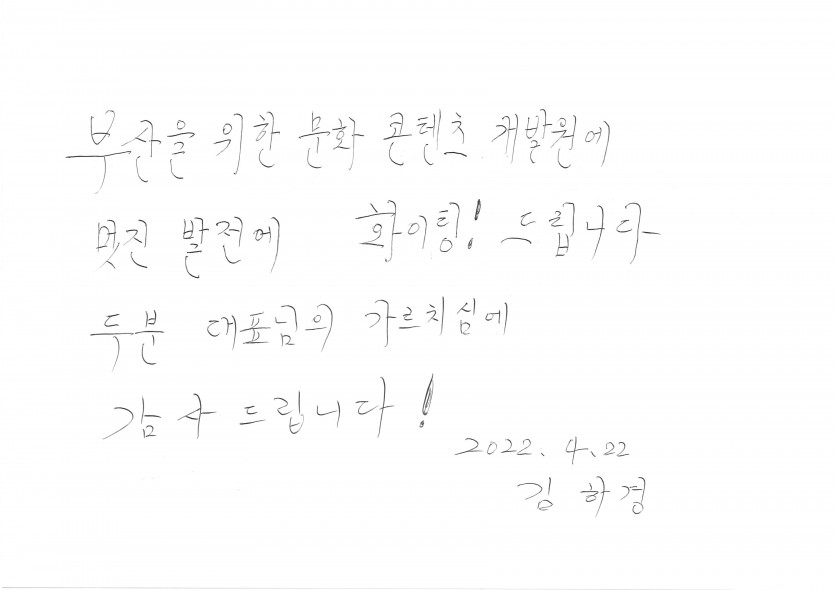 부산을 위한 문화 콘텐츠 개발원에
멋진 발전에 화이팅! 드립니다
두분 대표님의 가르치심에
감사 드립니다!
2022. 4. 22
김하경